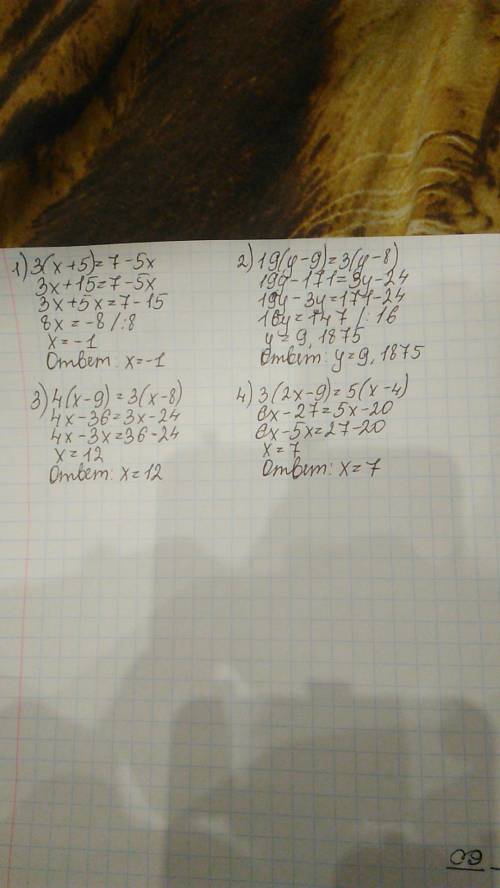 1) 3(x+5)=7-5x
3x+15=7-5x
3x+5x=7-15
8x=-8 /:8
x=-1
Ответ: x=-1
2) 19(y-9)=3(y-8)
19y-171=3y-24
19y-3y=171-24
16y=147 /:16
y=9,1875
Ответ: y=9,1875
3) 4(x-9)=3(x-8)
4x-36=3x-24
4x-3x=36-24
x=12
Ответ: x=12
4) 3(2x-9)=5(x-4)
6x-27=5x-20
6x-5x=27-20
x=7
Ответ: x=7